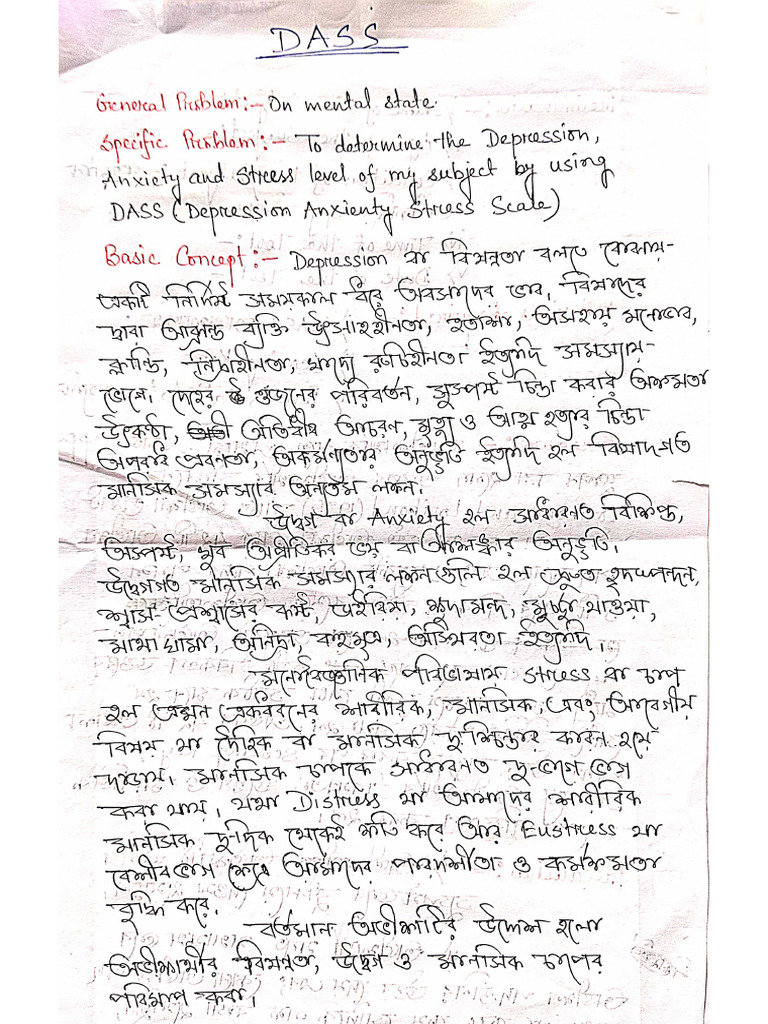 DASS
General Problem:- On mental state.
Specific Problem:- To determine the Depression,
Anxiety and Stress level of my subject by using
DASS (Depression Anxienty Stress Scale)
Basic Concept:- Depression বা বিষন্নতা বলতে বোঝায়-
একটি নির্দিষ্ট সময়কাল ধরে অবসাদের ভাব, বিষাদের
দ্বারা আক্রান্ত ব্যক্তি উৎসাহহীনতা, হতাশা, অসহায় মনোভাব,
ক্লান্তি, নিদ্রাহীনতা, খাদ্যে রুচিহীনতা ইত্যাদি সমস্যায়-
ভোগে। দেহের ওজনের পরিবর্তন, সুস্পষ্ট চিন্তা করার অক্ষমতা
উৎকণ্ঠা, অতিরীক্ত আচরণ, মৃত্যু ও আত্মহত্যার চিন্তা
অপরাধ প্রবনতা, অকর্মন্যতার অনুভূতি ইত্যাদি হল বিষাদগত
মানসিক সমস্যার অন্যতম লক্ষন।
উদ্বেগ বা Anxiety হল সাধারনত বিক্ষিপ্ত,
অস্পষ্ট, খুব অপ্রীতিকর ভয় বা আশঙ্কার অনুভূতি।
উদ্বেগগত মানসিক সমস্যার লক্ষনগুলি হল দ্রুত হৃদস্পন্দন,
শ্বাস-প্রশ্বাসের কষ্ট, ক্ষুদামন্দ, মুর্ছা যাওয়া,
মাথা ঘামা, অনিদ্রা, বহুমুত্র, অস্থিরতা ইত্যাদি।
মনোবৈজ্ঞানিক পরিভাষায় stress বা চাপ
হল এমন একধরনের শারীরিক, মানসিক, এবং আবেগীয়
বিষয় যা দৈহিক বা মানসিক দুঃশ্চিন্তার কারন হয়ে
দাড়ায়। মানসিক চাপকে সাধারনত দু-ভাগে ভাগ
করা যায়, যথা Distress যা আমাদের শারীরিক
মানসিক দুদিক থেকেই ক্ষতি করে আর Eustress যা
বেশীরভাগ ক্ষেত্রে আমাদের পারদর্শীতা ও কর্মক্ষমতা
বৃদ্ধি করে।
বর্তমান অভীক্ষাটির উদ্দেশ হলো
অভীক্ষার্থীর বিষন্নতা, উদ্বেগ ও মানসিক চাপের
পরিমাপ করা।